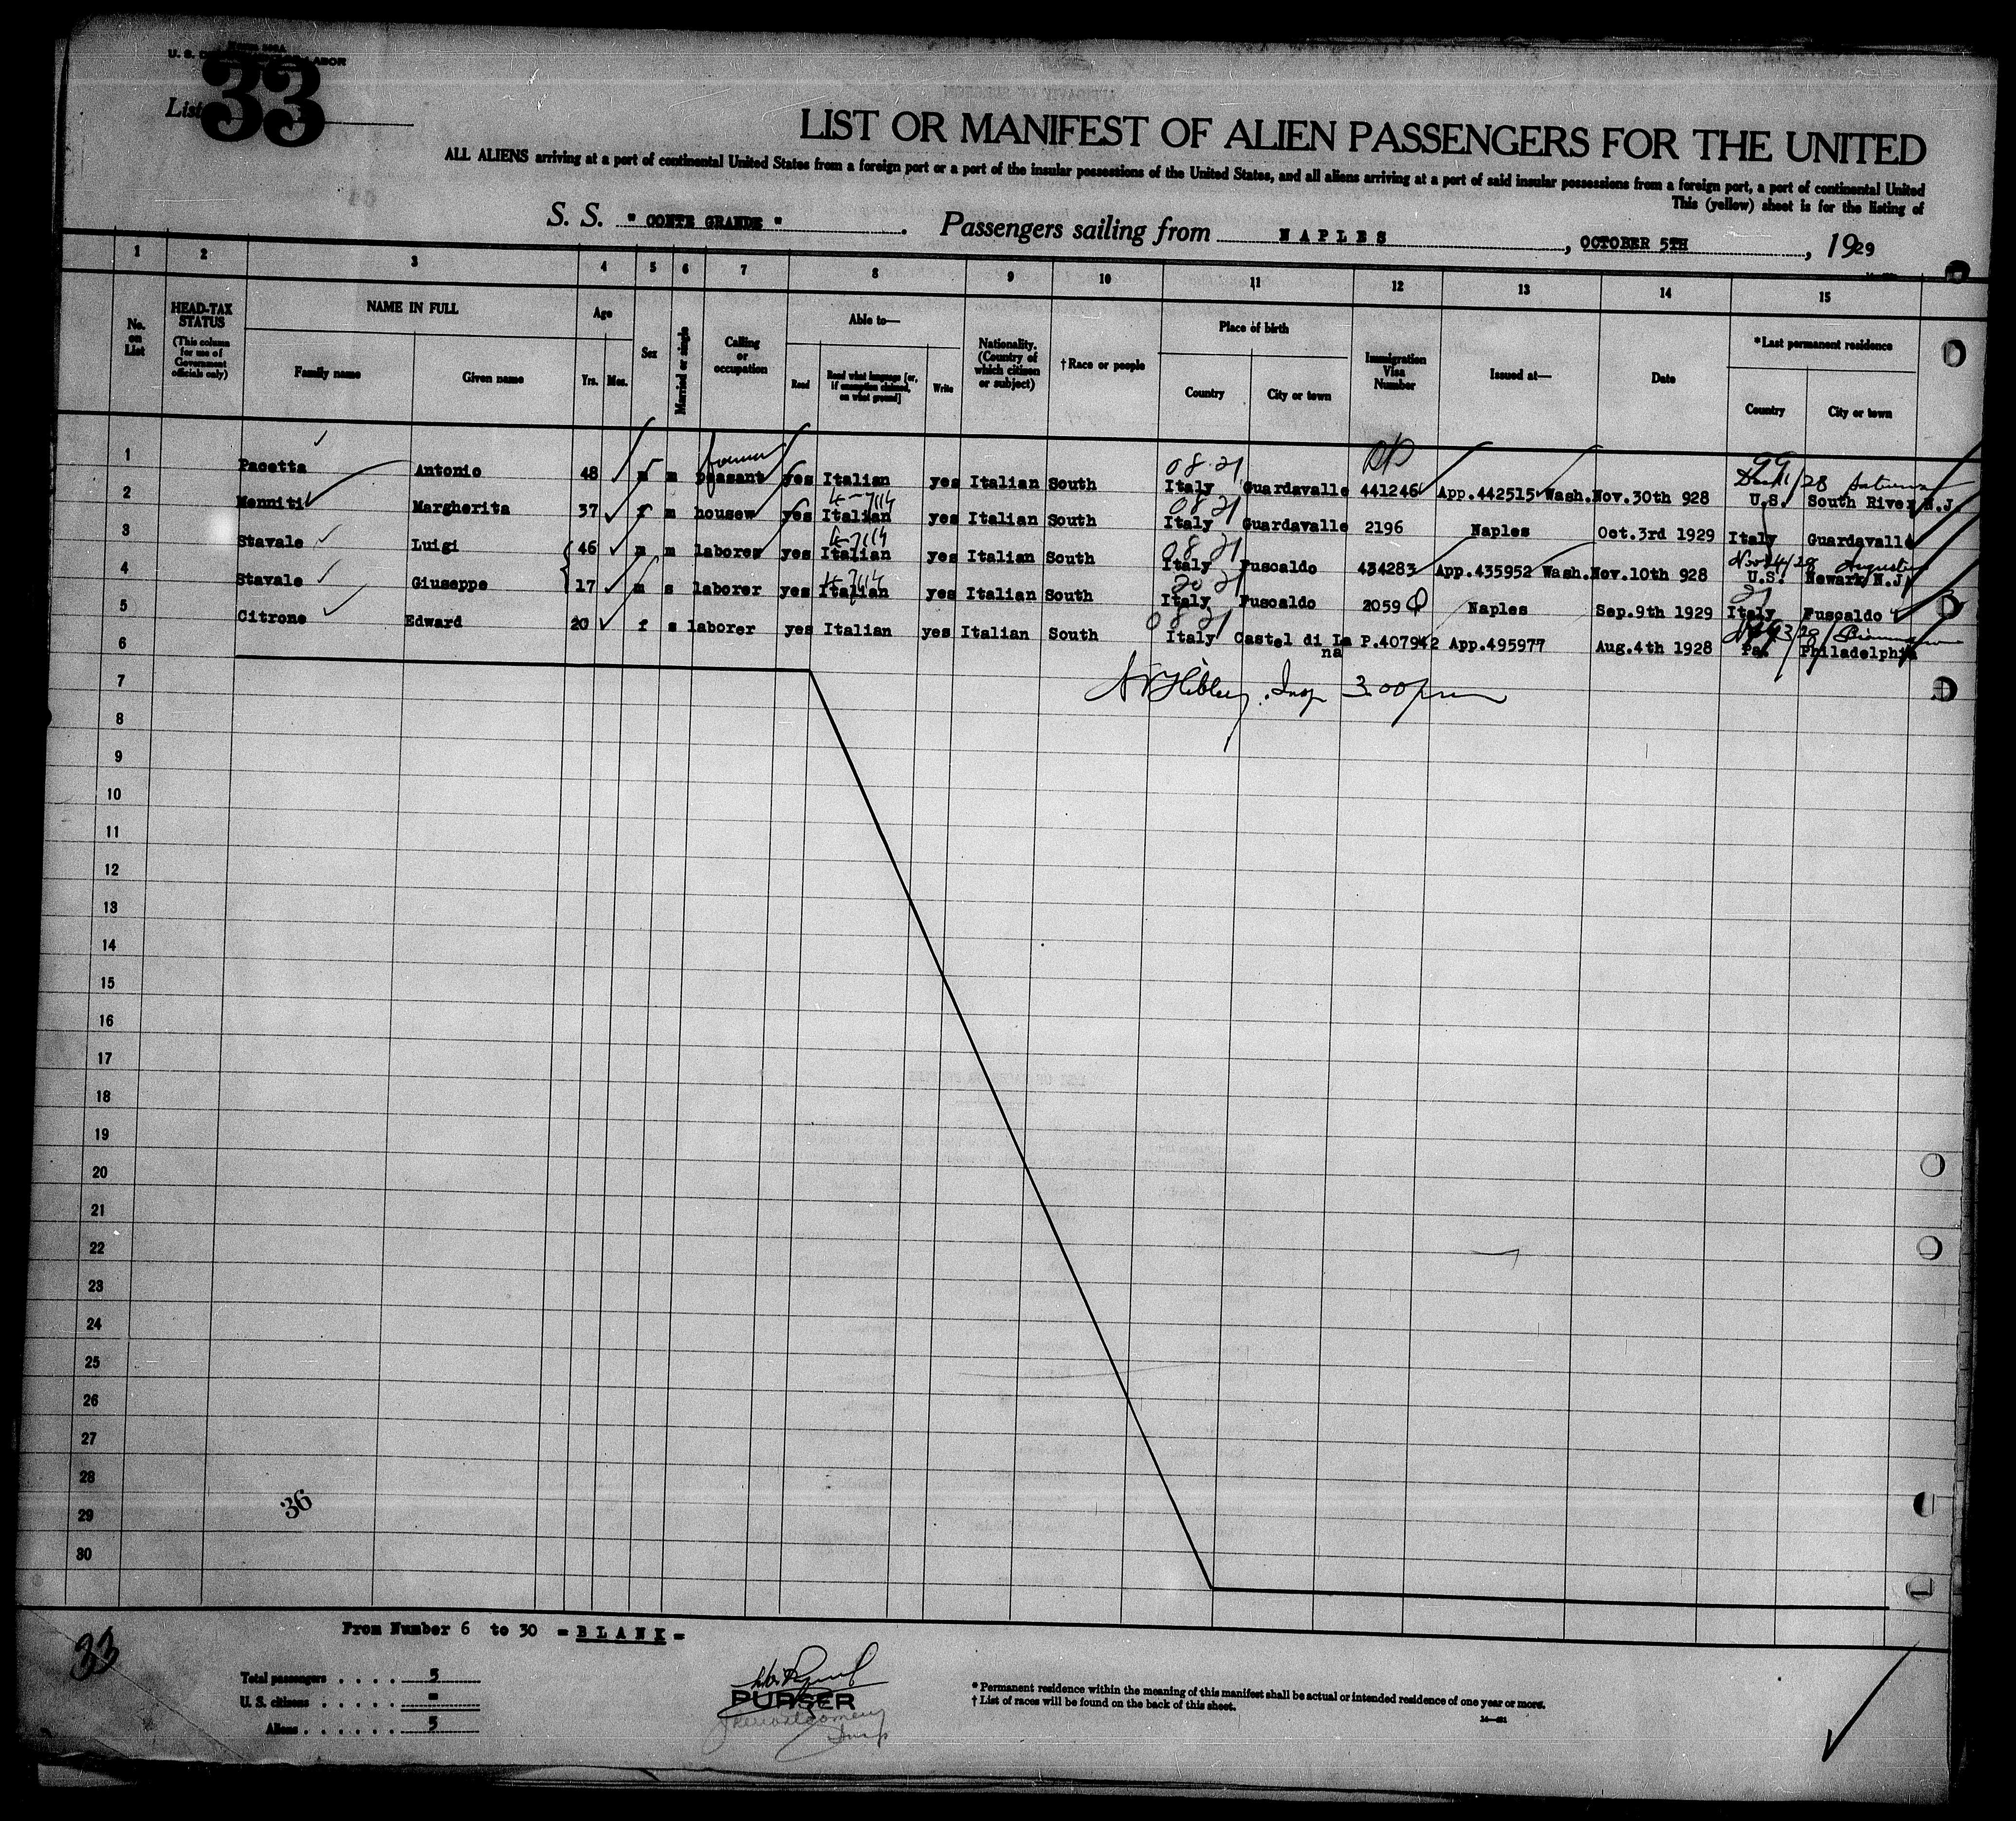 U. S. LABOR
List 33
LIST OR MANIFEST OF ALIEN PASSENGERS FOR THE UNITED
ALL ALIENS arriving at a port of continental United States from a foreign port or a port of the insular possessions of the United States, and all aliens arriving at a port of said insular possessions from a foreign port, a port of continental United
This (yellow) sheet is for the listing of
S. S. " CONTE GRANDE " . Passengers sailing from NAPLES , OCTOBER 5TH , 1929
1 2 3 4 5 6 7 8 9 10 11 12 13 14 15
No. on List
HEAD-TAX STATUS (This column for use of Government officials only)
NAME IN FULL
Family name Given name
Age
Yrs. Mos.
Sex
Married or single
Calling or occupation
Able to—
Read Read what language [or, if exemption claimed, on what ground] Write
Nationality. (Country of which citizen or subject)
† Race or people
Place of birth
Country City or town
Immigration Visa Number
Issued at—
Date
*Last permanent residence
Country City or town
1 Pacetta Antonio 48 m m peasant yes Italian yes Italian South 08 21 Italy Guardavalle 441246 App.442515 Wash. Nov.30th 928 U.S. South River N.J.
2 Menniti Margherita 37 f m housew yes Italian yes Italian South 08 21 Italy Guardavalle 2196 Naples Oct.3rd 1929 Italy Guardavalle
3 Stavale Luigi 46 m m laborer yes Italian yes Italian South 08 21 Italy Fuscaldo 434283 App.435952 Wash. Nov.10th 928 U.S. Newark N.J.
4 Stavale Giuseppe 17 m s laborer yes Italian yes Italian South 20 21 Italy Fuscaldo 2059 Naples Sep.9th 1929 Italy Fuscaldo
5 Citrone Edward 20 f s laborer yes Italian yes Italian South 08 21 Italy Castel di La na P.407942 App.495977 Aug.4th 1928 Pa. Philadelphia
6
Insp 3.00 pm
7
8
9
10
11
12
13
14
15
16
17
18
19
20
21
22
23
24
25
26
27
28
36
29
30
From Number 6 to 30 = BLANK =
33
Total passengers . . . . 5
U. S. citizens . . . . . =
Aliens . . . . . . 5
PURSER
Montgomery
Insp
* Permanent residence within the meaning of this manifest shall be actual or intended residence of one year or more.
† List of races will be found on the back of this sheet.